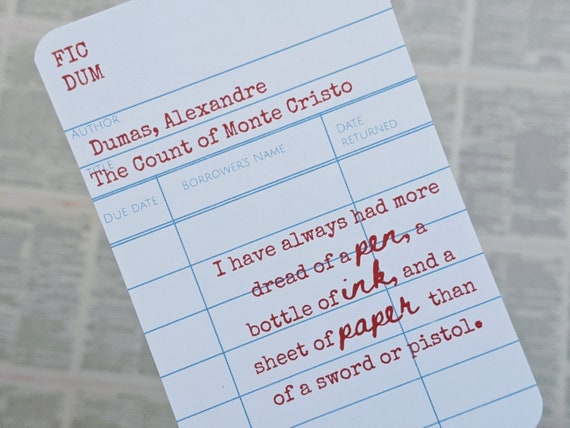 FIC
DUM
AUTHOR
Dumas, Alexandre
TITLE
The Count of Monte Cristo
DUE DATE
BORROWER'S NAME
DATE
RETURNED
I have always had more
dread of a pen, a
bottle of ink, and a
sheet of paper than
of a sword or pistol.